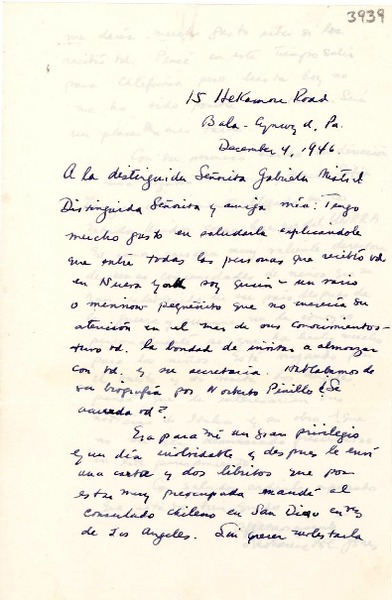 3939
15 Hekamore Road
Bala-Cynwyd, Pa.
December 4, 1946
A la distinguida Señorita Gabriela Mistral
Distinguida Señorita y amiga mía: Tengo
mucho gusto en saludarla explicandole
que entre todas las personas que recibió Vd.
en Nueva York soy quien - un
o minnow pequeñito que no merecía su
atención en el mar de sus conocimientos -
tuvo Vd. la bondad de invitar a almorzar
con Vd. y su secretaria. Hablabamos de
su biografía por Norberto Pinillo ¿Se
acuerda Vd?
Era para mí un gran privilegio
y un día inolvidable y después le envié
una carta y dos libritos que por
estar muy preocupada mandé al
consulado chileno en San Diego en vez
de Los Angeles. Sin querer molestarla